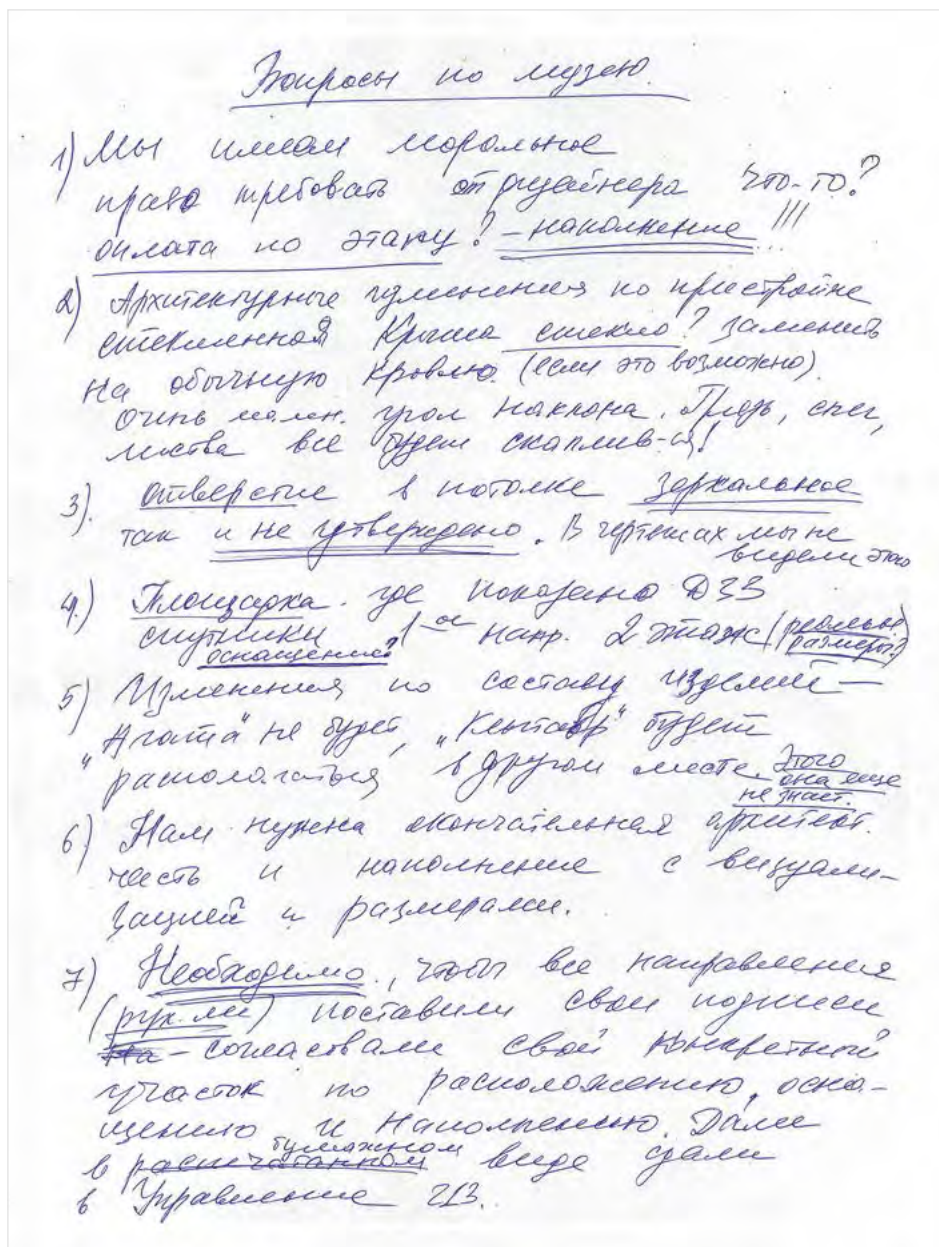 Вопросы по музею.
1) Мы имеем моральное
право требовать от дизайнера что-то?
оплата по этапу? – наполнение!!!
2) Архитектурные изменения по пристройке
стеклянная крыша стекло? заменить
на обычную кровлю. (если это возможно).
очень мален. угол наклона. Дождь, снег,
листва все будет скаплив-ся!
3). Отверстие в потолке зеркальное
так и не утверждено. В чертежах мы не
видели этого
4.) Площадка где показано ДЗЗ
спутники напр. 2 этаж (реальные
размеры?)
оснащение?
5) Изменения по составу изделий –
"Агата" не будет, "Кентавр" будет
распологаться в другом месте этого
она еще
не знает.
6) Нам нужна окончательная архитект.
часть и наполнение с визуали-
зацией и размерами.
7) Необходимо, чтобы все направления
(рук-ли) поставили свои подписи
На – согласовали свой конкретный
участок по расположению, осна-
щению и наполнению. Дали
бумажном
в распечатанном виде сдали
в Управление